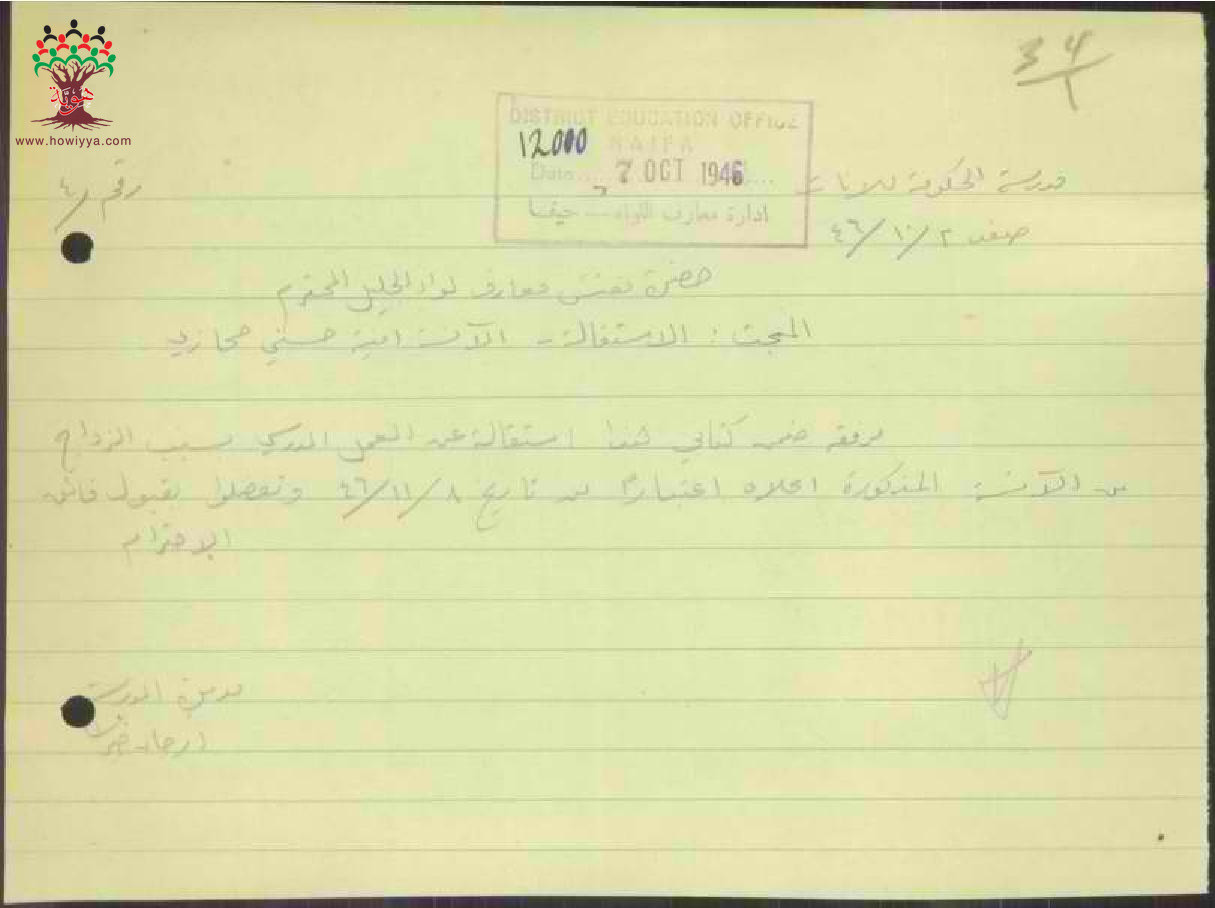 هوية
www.howiyya.com
34/1
DISTRICT EDUCATION OFFICE
HAIFA
12000
Date ..... 7 OCT 1946 .....
ادارة معارف اللواء — حيفا
مدرسة الحكومة للاناث
رقم ٤/١
صفد ٢/١٠/٤٦
حضرة مفتش معارف لواء الجليل المحترم
المبحث : الاستقالة - الآنسة امينة حسني حجازي
مرفقه ضمن كتابي هذا استقالة عن العمل المدرسي بسبب الزواج
من الآنسة المذكورة اعلاه اعتبارًا من تاريخ ٨/١١/٤٦ وتفضلوا بقبول فائق
الاحترام
مديرة المدرسة